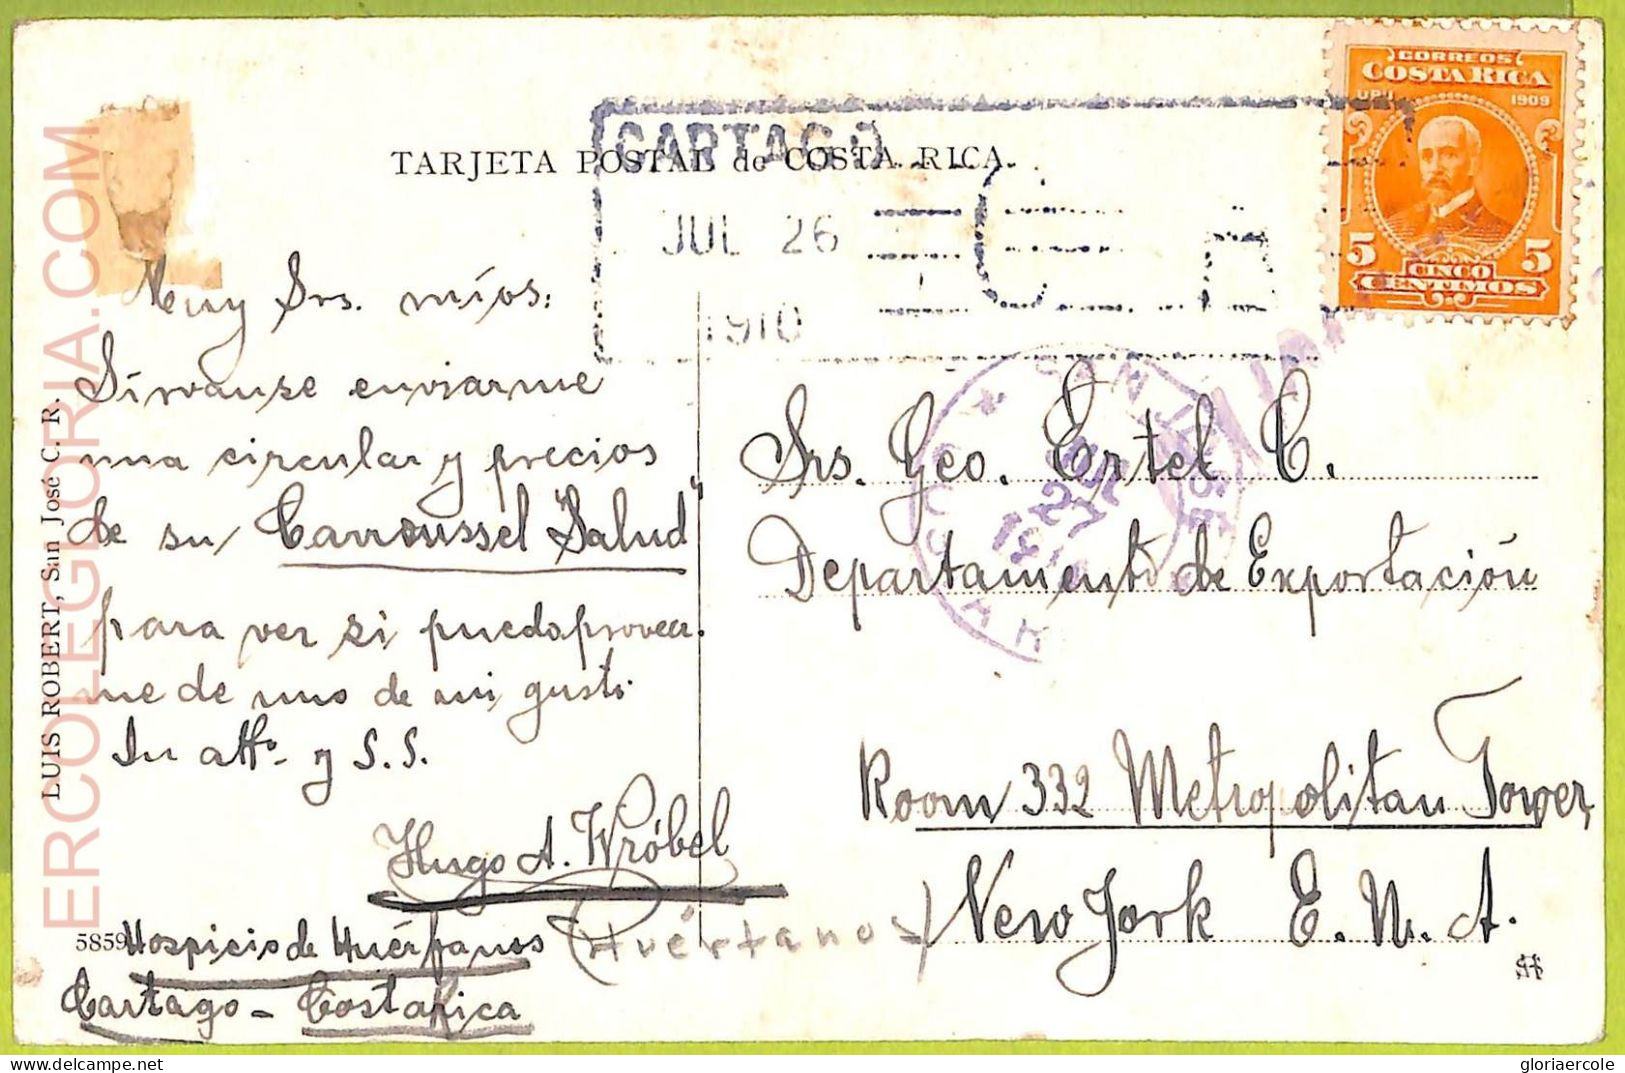 CORREOS
COSTA RICA
UPU 1909
5 CINCO 5
CENTIMOS
CARTAGO
TARJETA POSTAL de COSTA RICA
JUL 26
1910
Muy Srs. míos:
Sírvanse enviarme
una circular y precios
de su Carroussel "Salud"
para ver si puedo provea
me de uno de mi gusto
Su atto. y S.S.
Hugo A. Wróbel
5859
Hospicio de Huérfanos (Huérfanos)
Cartago - Costa Rica
SAN JOSE
JUL
27
Srs. Geo. Ertel C.
Departamento de Exportación
Room 332 Metropolitan Tower,
New York E. U. A.
LUIS ROBERT, San José C. R.
ERCOLEGLORIA.COM
delcampe.net
gloriaercole